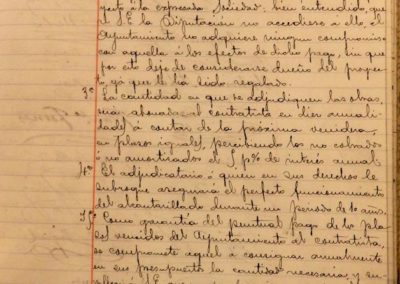 gente á la expresada Sociedad; bien entendido, que
si S.E. la Diputación no accediese á ello el
Ayuntamiento no adquiere ningun compromiso
con aquella á los efectos de dicho pago, sin que
por esto deje de considerarse dueño del proyec-
to, ya que le há sido regalado.
3º La cantidad en que se adjudiquen las obras,
serán abonadas al contratista en diez anuali-
dades á contar de la próxima venidera,
en plazos iguales, percibiendo los no cobrados
ó no amortizados el 5 p% de interés anual.
4º El adjudicatario ó quien en sus derechos le
subrogue asegurará el perfecto funcionamiento
del alcantarillado durante un periodo de 10 años.
5º Como garantía del puntual pago de los pla-
zos vencidos del Ayuntamiento al contratista,
se compromete aquel á consignar anualmente
en sus presupuestos la cantidad necesaria, y su-